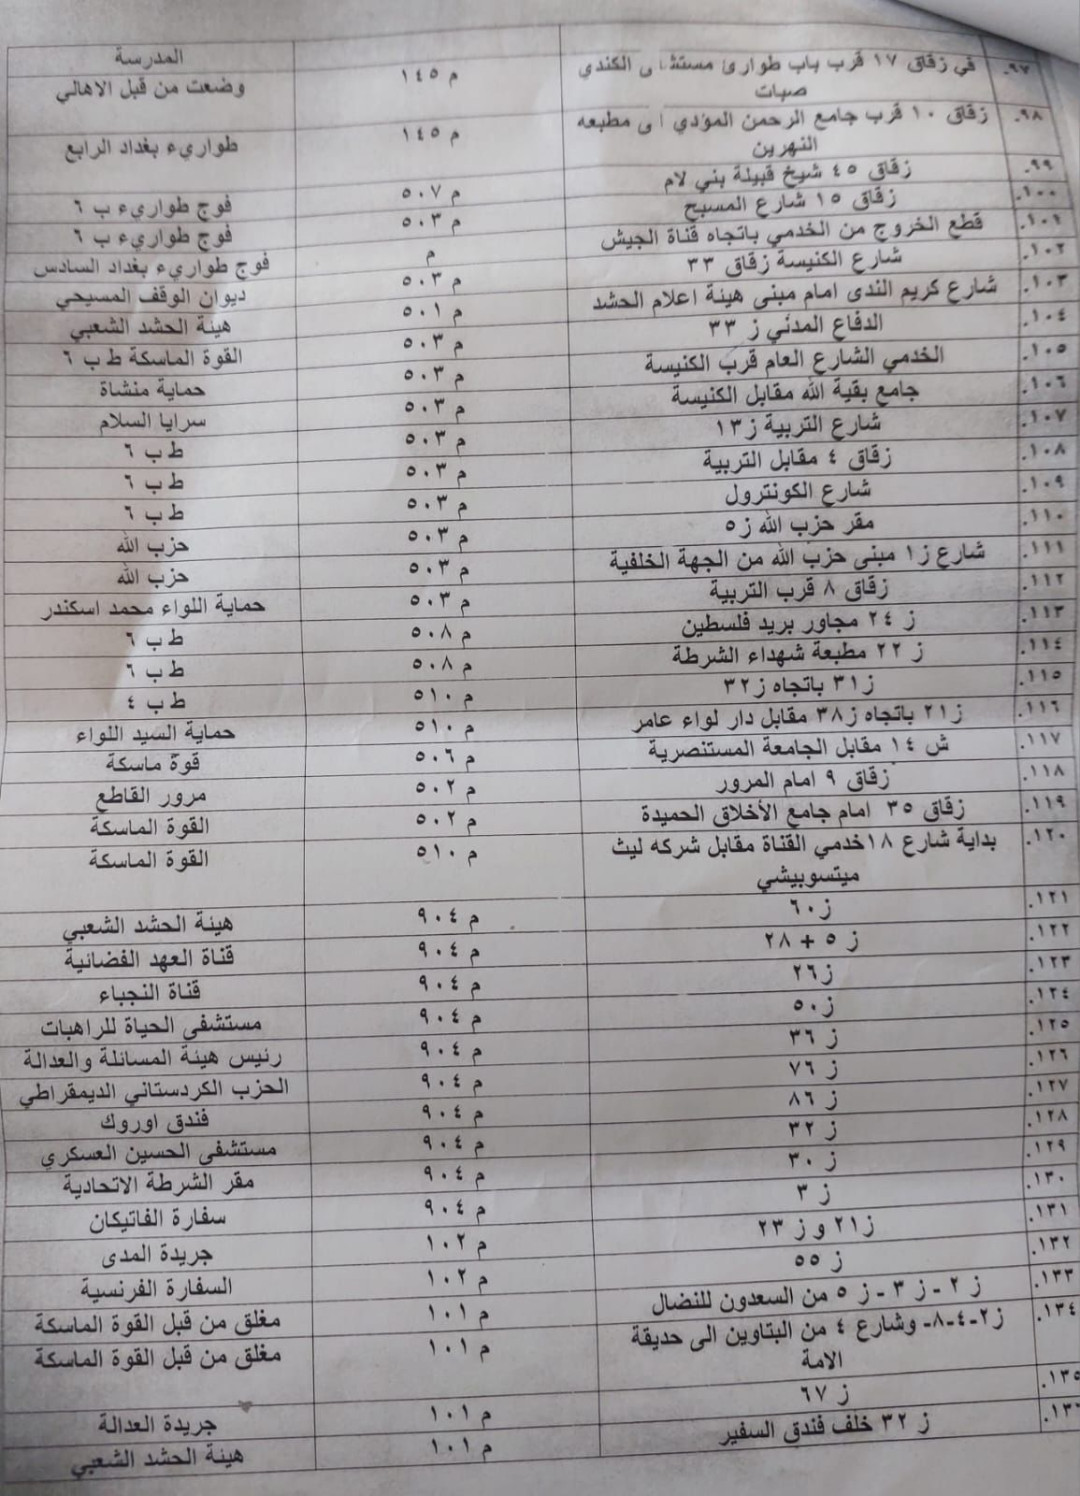 المدرسة
.٩٧ في زقاق ١٧ قرب باب طوارئ مستشفى الكندي م ١٤٥ وضعت من قبل الاهالي
صبات
.٩٨ زقاق ١٠ قرب جامع الرحمن المؤدي الى مطبعه م ١٤٥ طواريء بغداد الرابع
النهرين
.٩٩ زقاق ٤٥ شيخ قبيلة بني لام م ٥٠٧ فوج طواريء ب ٦
.١٠٠ زقاق ١٥ شارع المسبح م ٥٠٣ فوج طواريء ب ٦
.١٠١ قطع الخروج من الخدمي باتجاه قناة الجيش م فوج طواريء بغداد السادس
.١٠٢ شارع الكنيسة زقاق ٣٣ م ٥٠٣ ديوان الوقف المسيحي
.١٠٣ شارع كريم الندى امام مبنى هيئة اعلام الحشد م ٥٠١ هيئة الحشد الشعبي
.١٠٤ الدفاع المدني ز ٣٣ م ٥٠٣ القوة الماسكة ط ب ٦
.١٠٥ الخدمي الشارع العام قرب الكنيسة م ٥٠٣ حماية منشاة
.١٠٦ جامع بقية الله مقابل الكنيسة م ٥٠٣ سرايا السلام
.١٠٧ شارع التربية ز١٣ م ٥٠٣ ط ب ٦
.١٠٨ زقاق ٤ مقابل التربية م ٥٠٣ ط ب ٦
.١٠٩ شارع الكونترول م ٥٠٣ ط ب ٦
.١١٠ مقر حزب الله ز٥ م ٥٠٣ حزب الله
.١١١ شارع ز١ مبنى حزب الله من الجهة الخلفية م ٥٠٣ حزب الله
.١١٢ زقاق ٨ قرب التربية م ٥٠٣ حماية اللواء محمد اسكندر
.١١٣ ز ٢٤ مجاور بريد فلسطين م ٥٠٨ ط ب ٦
.١١٤ ز ٢٢ مطبعة شهداء الشرطة م ٥٠٨ ط ب ٦
.١١٥ ز٣١ باتجاه ز٣٢ م ٥١٠ ط ب ٤
.١١٦ ز٢١ باتجاه ز٣٨ مقابل دار لواء عامر م ٥١٠ حماية السيد اللواء
.١١٧ ش ١٤ مقابل الجامعة المستنصرية م ٥٠٦ قوة ماسكة
.١١٨ زقاق ٩ امام المرور م ٥٠٢ مرور القاطع
.١١٩ زقاق ٣٥ امام جامع الأخلاق الحميدة م ٥٠٢ القوة الماسكة
.١٢٠ بداية شارع ١٨خدمي القناة مقابل شركه ليث م ٥١٠ القوة الماسكة
ميتسوبيشي
.١٢١ ز٦٠ م ٩٠٤ هيئة الحشد الشعبي
.١٢٢ ز ٥ + ٢٨ م ٩٠٤ قناة العهد الفضائية
.١٢٣ ز٢٦ م ٩٠٤ قناة النجباء
.١٢٤ ز٥٠ م ٩٠٤ مستشفى الحياة للراهبات
.١٢٥ ز ٣٦ م ٩٠٤ رئيس هيئة المسائلة والعدالة
.١٢٦ ز ٧٦ م ٩٠٤ الحزب الكردستاني الديمقراطي
.١٢٧ ز ٨٦ م ٩٠٤ فندق اوروك
.١٢٨ ز ٣٢ م ٩٠٤ مستشفى الحسين العسكري
.١٢٩ ز ٣٠ م ٩٠٤ مقر الشرطة الاتحادية
.١٣٠ ز ٣ م ٩٠٤ سفارة الفاتيكان
.١٣١ ز٢١ و ز ٢٣ م ١٠٢ جريدة المدى
.١٣٢ ز ٥٥ م ١٠٢ السفارة الفرنسية
.١٣٣ ز ٢ - ز ٣ - ز ٥ من السعدون للنضال م ١٠١ مغلق من قبل القوة الماسكة
.١٣٤ ز٢-٤-٨- وشارع ٤ من البتاوين الى حديقة م ١٠١ مغلق من قبل القوة الماسكة
الامة
.١٣٥ ز ٦٧ م ١٠١ جريدة العدالة
ز ٣٢ خلف فندق السفير م ١٠١ هيئة الحشد الشعبي